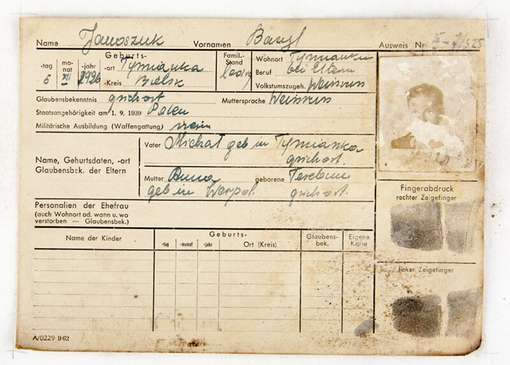 Name Jaroszuk Vornamen Bazyl Ausweis Nr.
Geburts-
-tag mo-nat -jahr -ort Tymianka Famil.-Stand ledig Wohnort Tymianka
6 XI 1936 -Kreis Bielsk Beruf bei Eltern
Volkstumszugeh. Weissrus
Glaubensbekenntnis gr.orthort Muttersprache Weissrus
Staatsangehörigkeit am 1. 9. 1939 Polen
Militärische Ausbildung (Waffengattung) nein
Name, Geburtsdaten, -ort
Glaubensbek. der Eltern
Vater Michał geb in Tymianka
Mutter Anna geborene
geb in
Personalien der Ehefrau
(auch Wohnort od. wann u. wo
verstorben — Glaubensbek.)
Name der Kinder Geburts- Glaubens-bek. Eigene Karte
-tag -monat -jahr Ort (Kreis)
Fingerabdruck
rechter Zeigefinger
linker Zeigefinger
A/0229 II-62